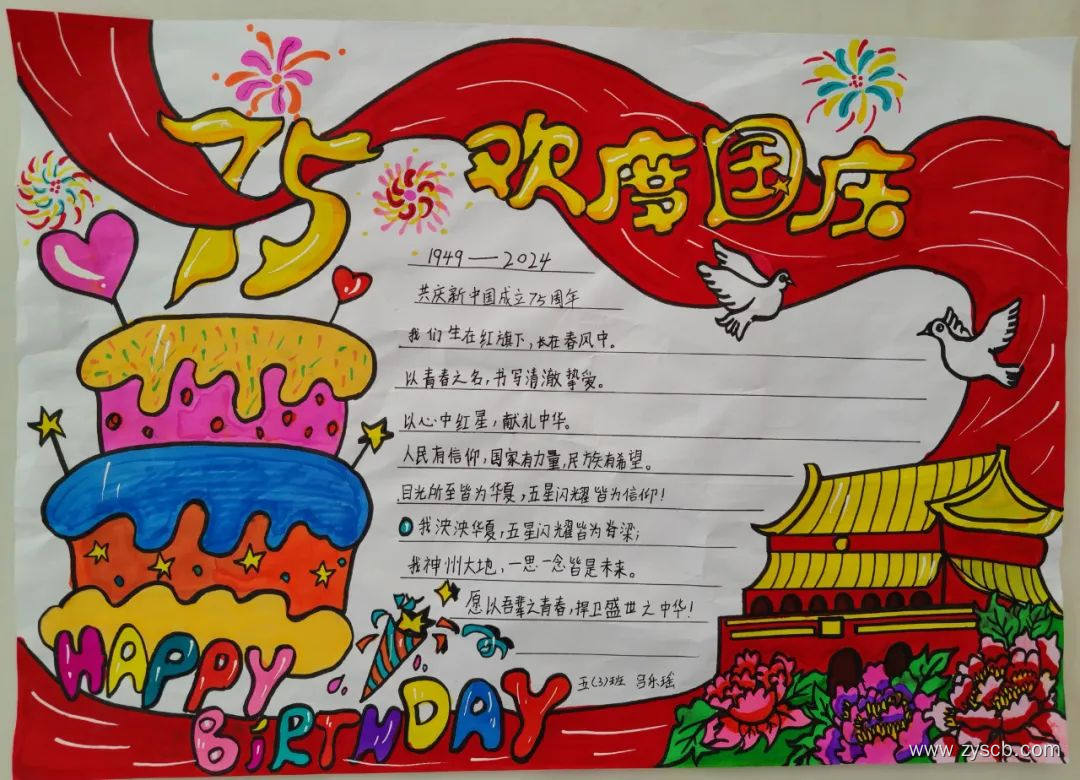 75 欢度国庆
1949——2024
共庆新中国成立75周年
我们生在红旗下，长在春风中。
以青春之名，书写清澈挚爱。
以心中红星，献礼中华。
人民有信仰，国家有力量，民族有希望。
目光所至皆为华夏，五星闪耀皆为信仰！
我泱泱华夏，五星闪耀皆为脊梁；
我神州大地，一思一念皆是未来。
愿以吾辈之青春，捍卫盛世之中华！
HAPPY
BiRTHDAY
五(3)班 马乐瑶
www.zyscb.com